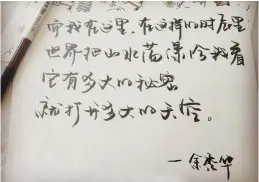 而我在这里，在这样的时辰里
世界把山水荡漾给我看
它有多大的秘密
就打开多大的天窗。
—余秀华